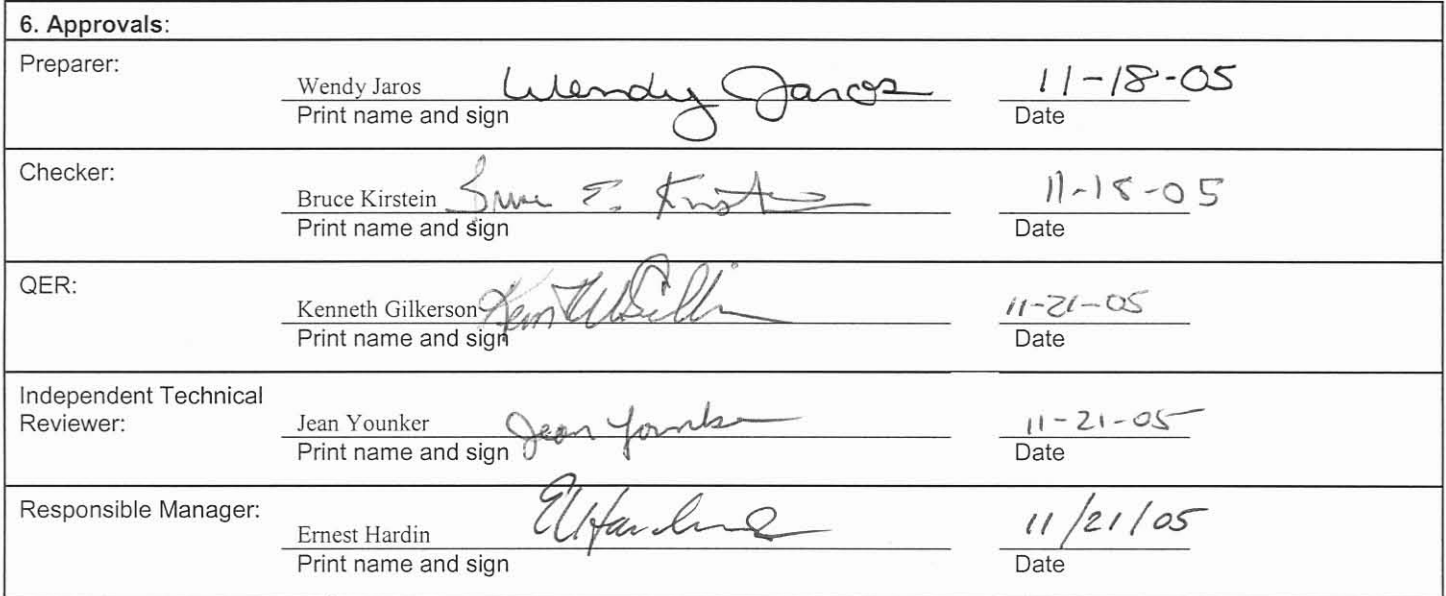 6. Approvals:
Preparer:
Wendy Jaros Wendy Jaros 11-18-05
Print name and sign Date
Checker:
Bruce Kirstein Bruce E. Kirstein 11-18-05
Print name and sign Date
QER:
Kenneth Gilkerson 11-21-05
Print name and sign Date
Independent Technical
Reviewer:
Jean Younker Jean Younker 11-21-05
Print name and sign Date
Responsible Manager:
Ernest Hardin EHardin 11/21/05
Print name and sign Date